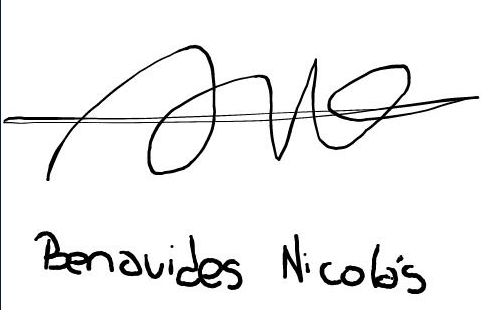 Benavides Nicolás